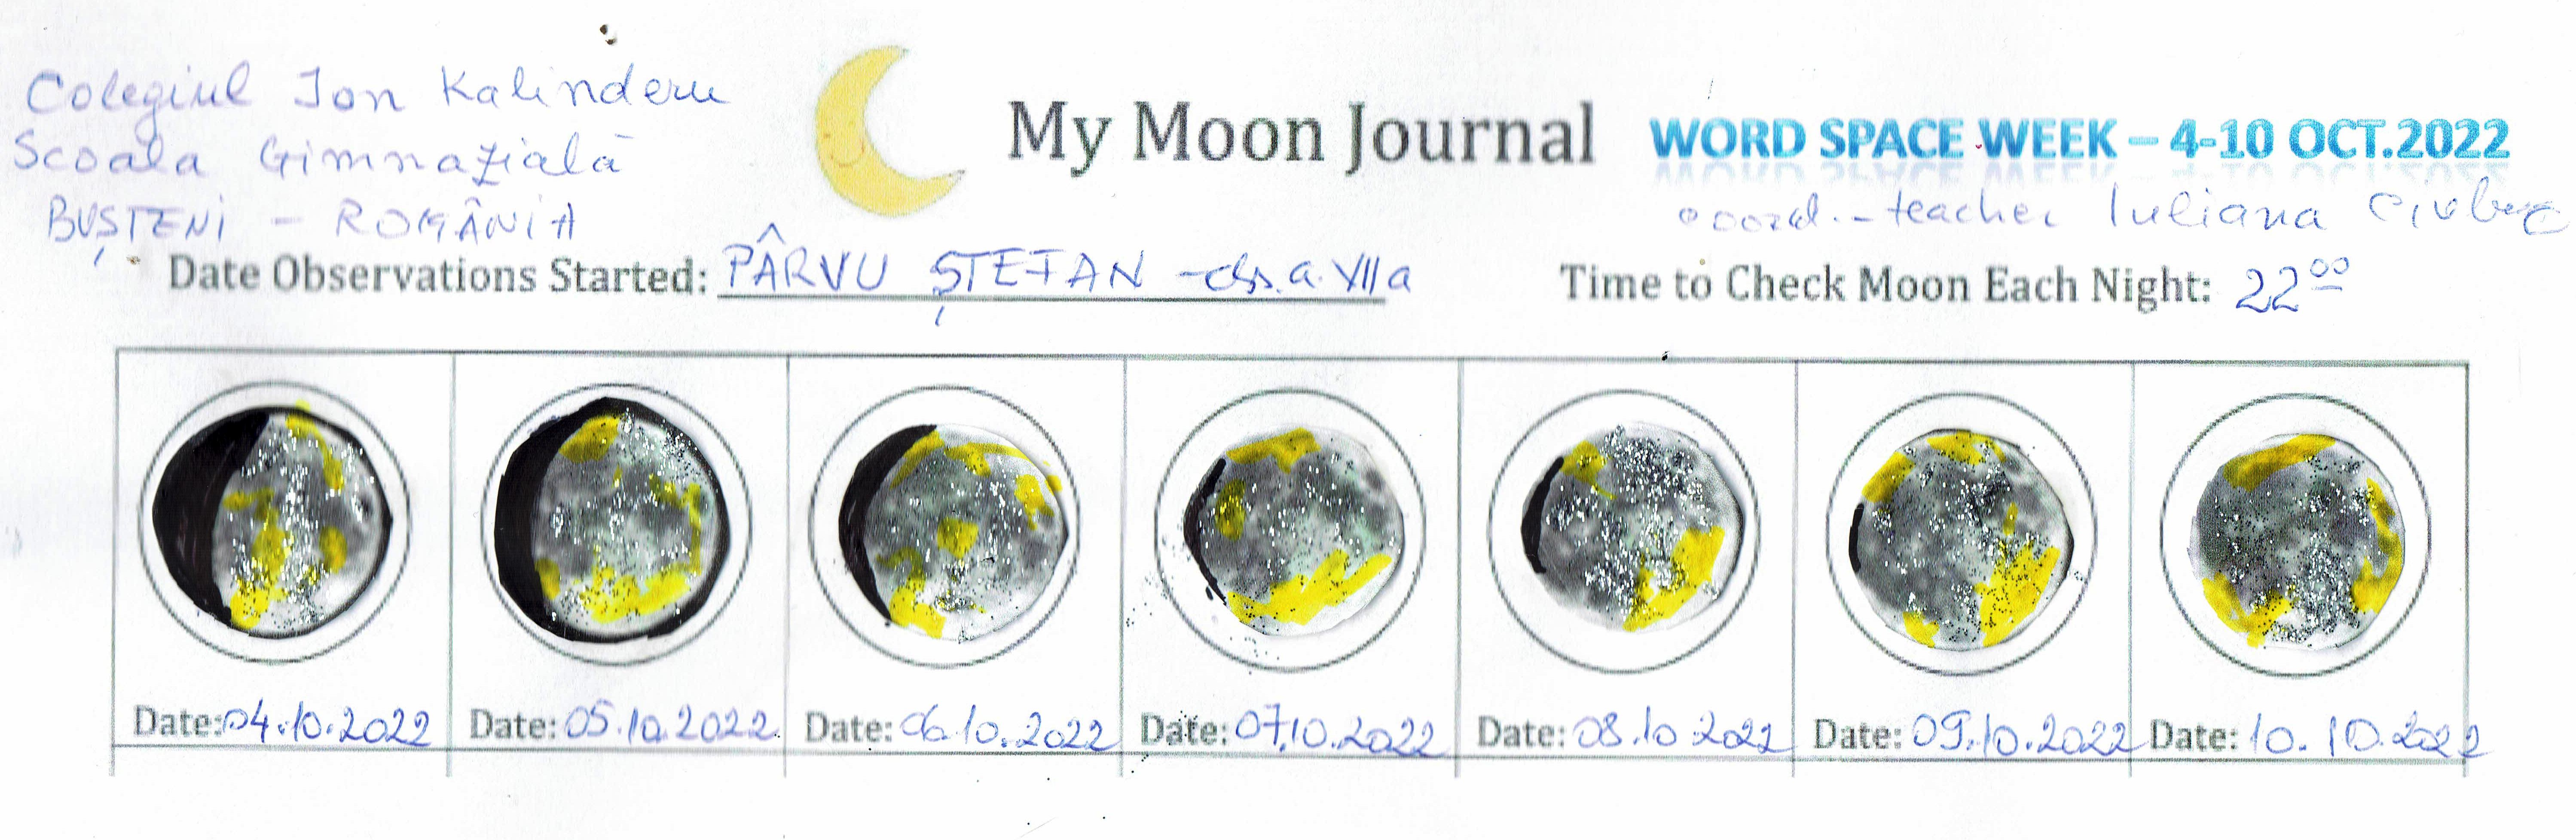 Colegiul Ion Kalinderu
Scoala Gimnazială
BUȘTENI - ROMÂNIA
My Moon Journal
WORD SPACE WEEK – 4-10 OCT.2022
coord. - teacher Iuliana
Date Observations Started: PÂRVU ȘTEFAN - cls. a VII a
Time to Check Moon Each Night: 22 00
Date: 04.10.2022
Date: 05.10.2022
Date: 06.10.2022
Date: 07.10.2022
Date: 08.10.2022
Date: 09.10.2022
Date: 10.10.2022